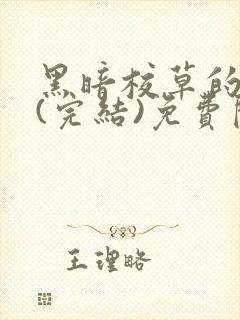 黑暗校草的
(完結)免費
王理略